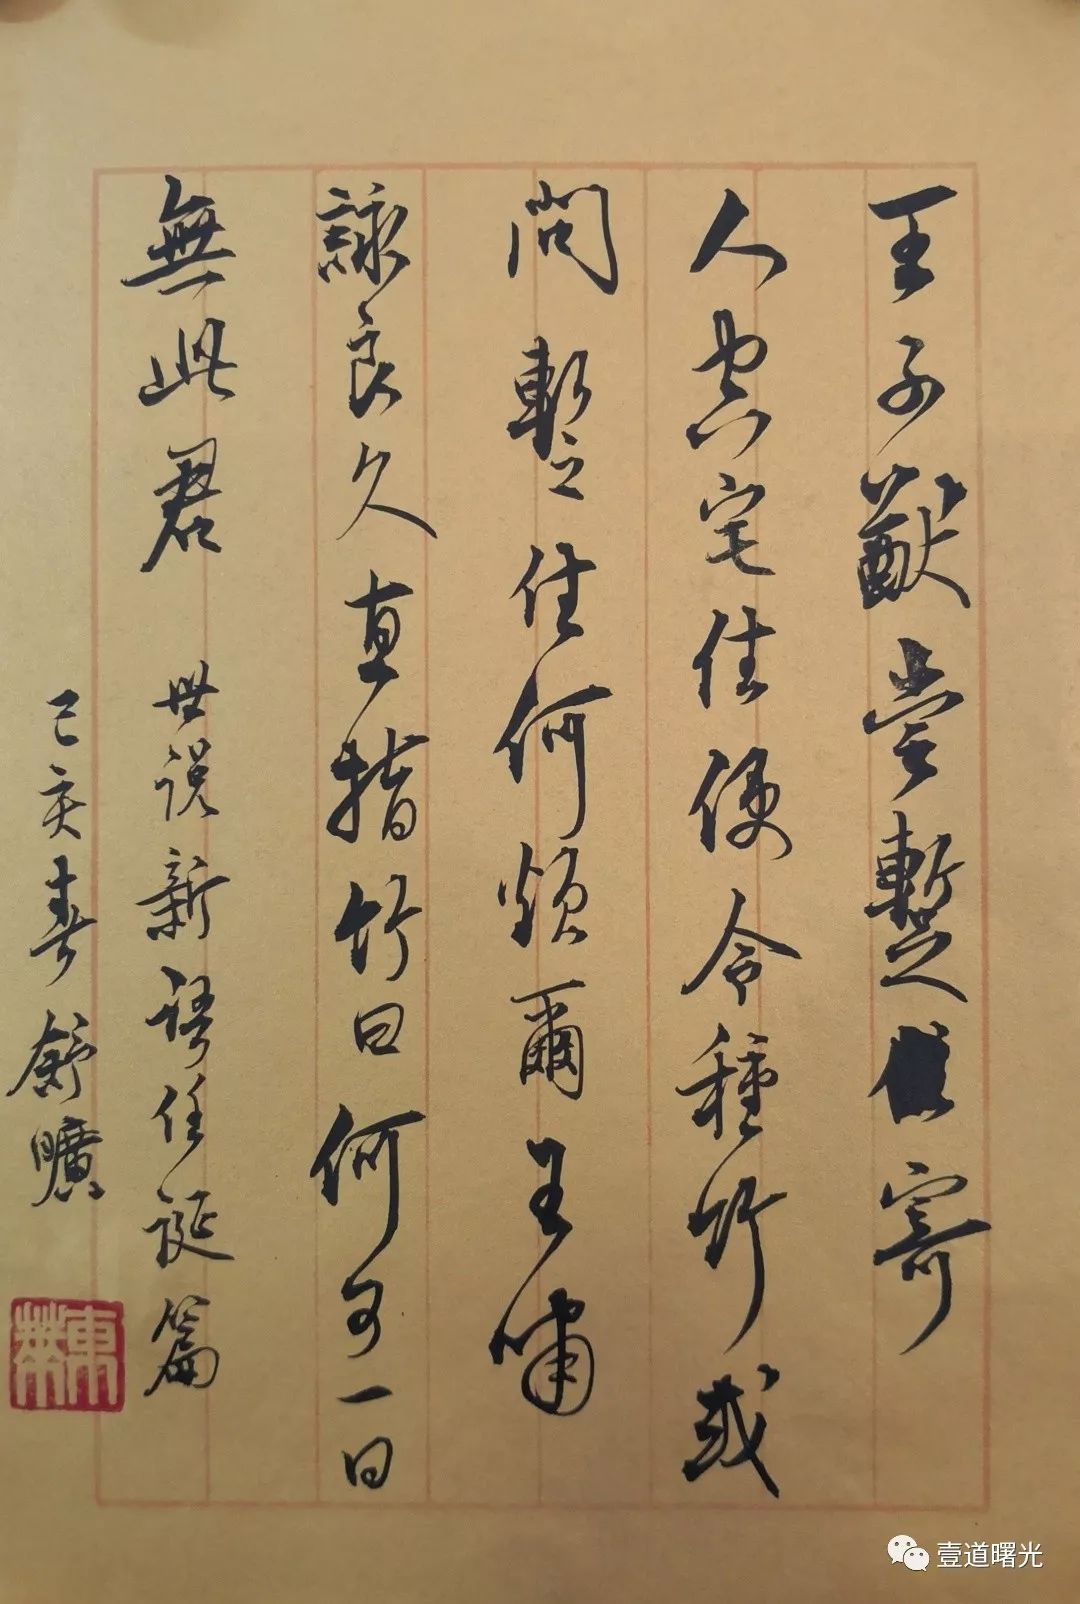 王子猷嘗暫寄
人空宅住便令種竹或
問暫住何煩爾王嘯
詠良久直指竹曰何可一日
無此君
世说新語任诞篇
己亥春舒曠
壹道曙光